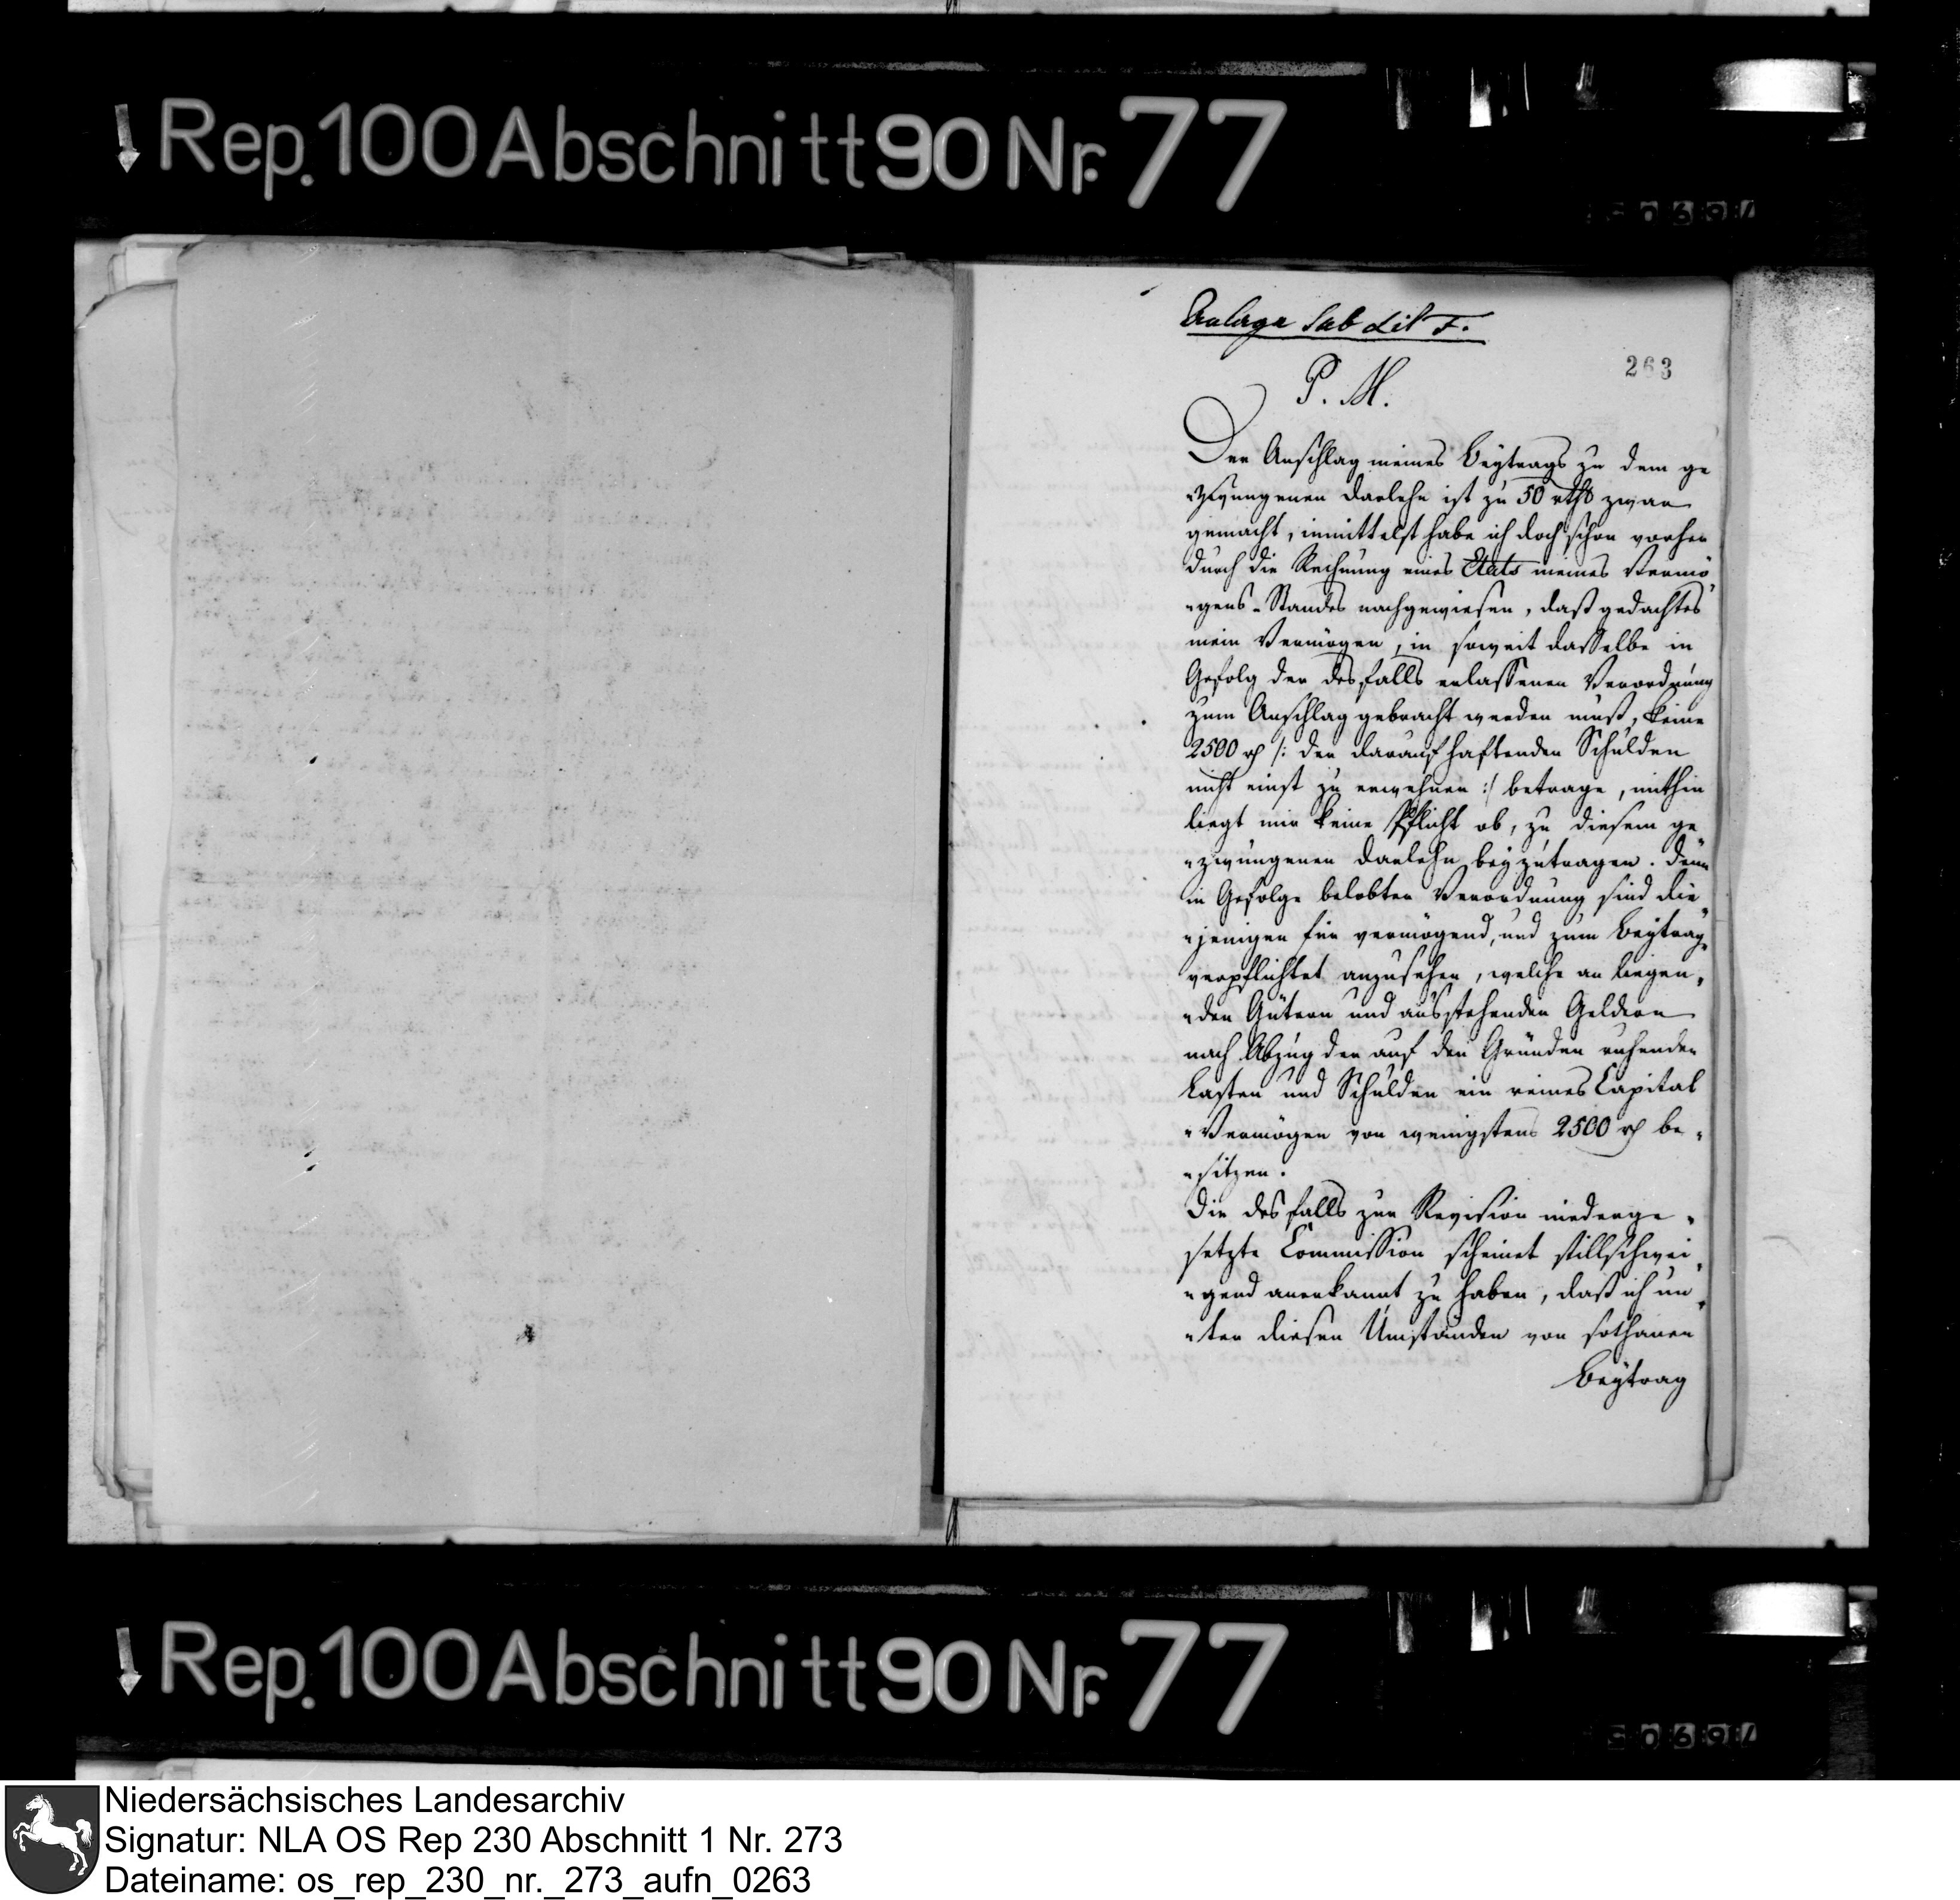 Rep. 100 Abschnitt 90 Nr. 77
Anlage sub Lit F.
263
P. M.
Der Anschlag meines Beytrags zu dem ge
„zwungenen Darlehn ist zu 50 rthl zwar
gemacht, inmittelst habe ich doch schon vorher
durch die Rechnung eines Etats meines Vermö
„gens-Standes nachgewiesen, daß gedachtes
mein Vermögen, in soweit dasselbe in
Gefolg der desfalls erlassenen Verordnung
zum Anschlag gebracht werden muß, keine
2500 rh /: der darauf haftenden Schulden
nicht einst zu erwehnen :/ betrage, mithin
liegt mir keine Pflicht ob, zu diesem ge
„zwungenen Darlehn beyzutragen. Denn
in Gefolge belobter Verordnung sind die
„jenigen für vermögend, und zum Beytrag
verpflichtet anzusehen, welche an liegen„
„den Gütern und ausstehenden Geldern
nach Abzug der auf den Gründen ruhenden
Lasten und Schulden ein reines Capital
„Vermögen von wenigstens 2500 rh be„
„sitzen.
Die desfalls zur Revision niederge„
setzte Commission scheinet stillschwei„
„gend anerkannt zu haben, daß ich un„
„ter diesen Umständen von sothanen
Beytrag
Rep. 100 Abschnitt 90 Nr. 77
Niedersächsisches Landesarchiv
Signatur: NLA OS Rep 230 Abschnitt 1 Nr. 273
Dateiname: os_rep_230_nr._273_aufn_0263